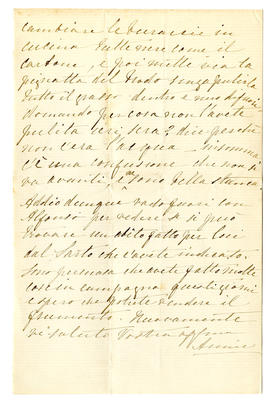 cambiare le buraccie in
cucina tutte nere come il
carbone, e poi mette via la
pignatta del brodo senza pulirla
tutto il grasso dentro e
domando per cosa non l'avete
pulita ieri sera? dice perchè
non c'era l'acqua insomma
c'è una confusione che non si
va avanti, e sono bella stanca.
Addio dunque vado fuori con
Alfonso per vedere se si può
trovare un abito fatto per lui
dal Sarto che avete indicato.
Sono persuasa che avete fatto molte
cose in campagna questi giorni
e spero che potrete vendere il
frumento. Nuovamente
vi saluto Vostra aff.ma